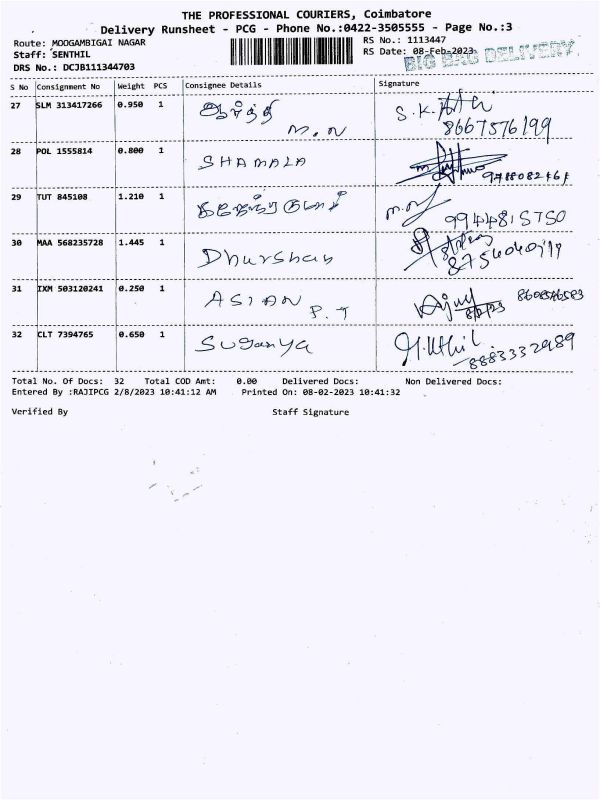 THE PROFESSIONAL COURIERS, Coimbatore
Delivery Runsheet - PCG - Phone No.:0422-3505555 - Page No.:3
Route: MOOGAMBIGAI NAGAR RS No.: 1113447
Staff: SENTHIL RS Date: 08-Feb-2023
BIG BAG DELIVERY
DRS No.: DCJB111344703
S No Consignment No Weight PCS Consignee Details Signature
27 SLM 313417266 0.950 1 ஆர்த்தி S.K.
M.N 8667576199
28 POL 1555814 0.800 1 SHAMALA
29 TUT 845108 1.210 1 9944815750
30 MAA 568235728 1.445 1 Dhurshan
31 IXM 503120241 0.250 1 ASIAN
P.T 8/2/23
32 CLT 7394765 0.650 1 Suganya
8883332989
Total No. Of Docs: 32 Total COD Amt: 0.00 Delivered Docs: Non Delivered Docs:
Entered By :RAJIPCG 2/8/2023 10:41:12 AM Printed On: 08-02-2023 10:41:32
Verified By Staff Signature